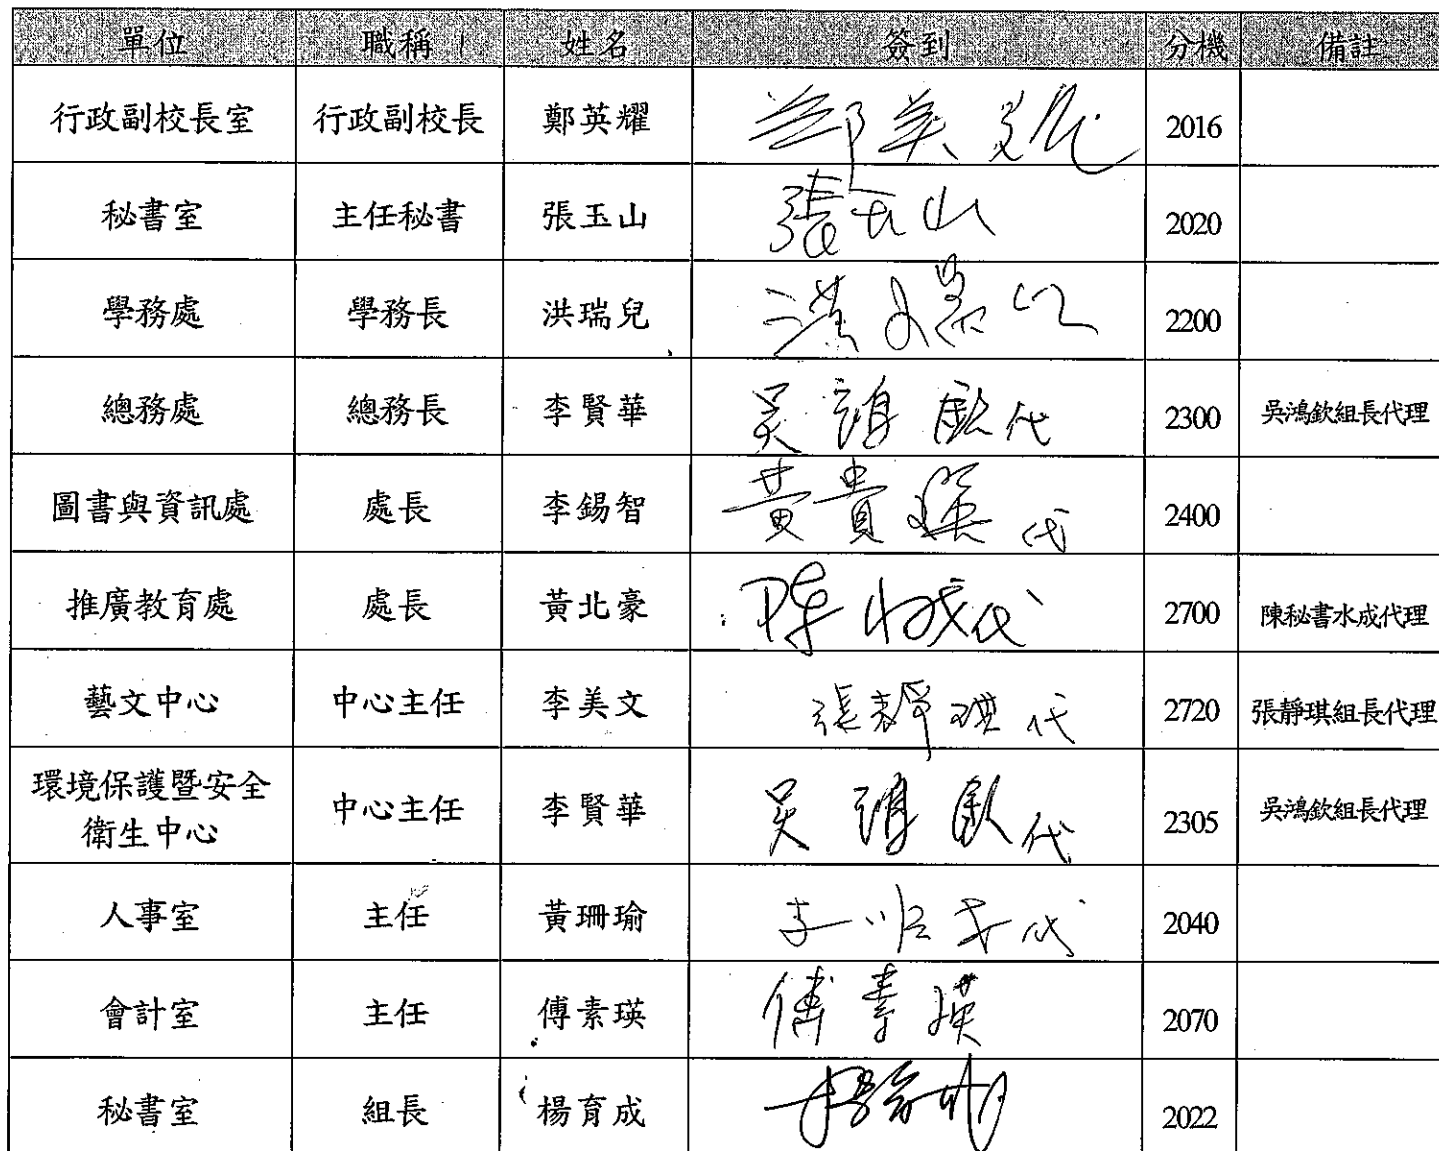 單位 職稱 姓名 簽到 分機 備註
行政副校長室 行政副校長 鄭英耀 鄭英耀 2016
秘書室 主任秘書 張玉山 張玉山 2020
學務處 學務長 洪瑞兒 洪瑞兒 2200
總務處 總務長 李賢華 吳鴻欽代 2300 吳鴻欽組長代理
圖書與資訊處 處長 李錫智 黃貴瑛代 2400
推廣教育處 處長 黃北豪 陳水成代 2700 陳秘書水成代理
藝文中心 中心主任 李美文 張靜琪代 2720 張靜琪組長代理
環境保護暨安全
衛生中心 中心主任 李賢華 吳鴻欽代 2305 吳鴻欽組長代理
人事室 主任 黃珊瑜 李 代 2040
會計室 主任 傅素瑛 傅素瑛 2070
秘書室 組長 楊育成 楊育成 2022